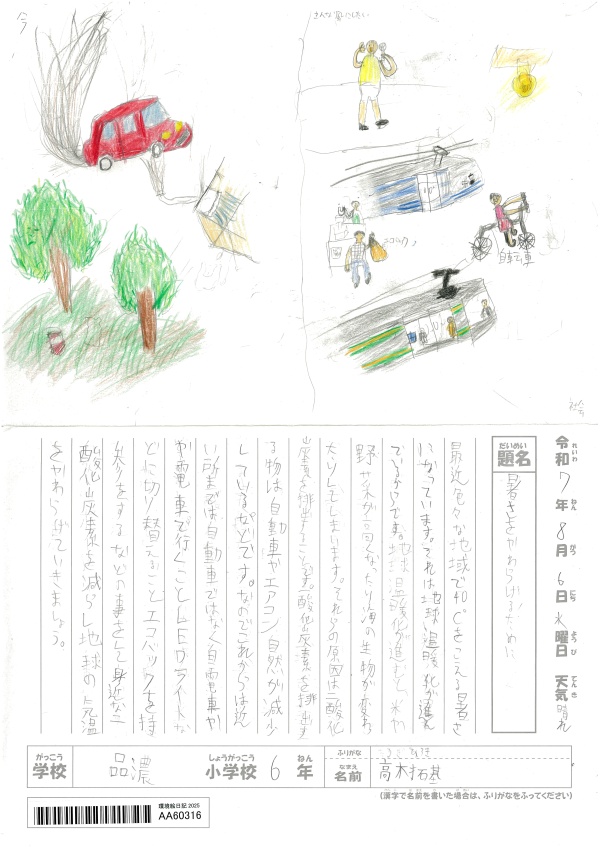 今
こんな風にしたい
エコバック
自転車
社会
令和7年8月6日水曜日 天気 晴れ
れいわ ねん がつ にち ようび てんき
だいめい
題名
暑さをやわらげるために
最近色々な地域で40℃をこえる暑さ
になっています。それは地球温暖化が進ん
でいるからです。地球温暖化が進むと米や
野サイが高くなったり海の生物が変わっ
たりしてしまいます。それらの原因は二酸化
炭素を排出することです。二酸化炭素を排出す
る物は自動車やエアコン自然が減少
しているなどです。なのでこれからは近
い所までは自動車ではなく自電車や
や電車で行くことLEDライトな
どに切り替えることエコバックを持
参をするなどの事をして身近な二
酸化炭素を減らし地球の気温
をやわらげていきましょう。
がっこう
学校
品濃
しょうがっこう
小学校
6
ねん
年
ふりがな
なまえ
名前
高木拓基
(漢字で名前を書いた場合は、ふりがなをふってください)
環境絵日記2025
AA60316